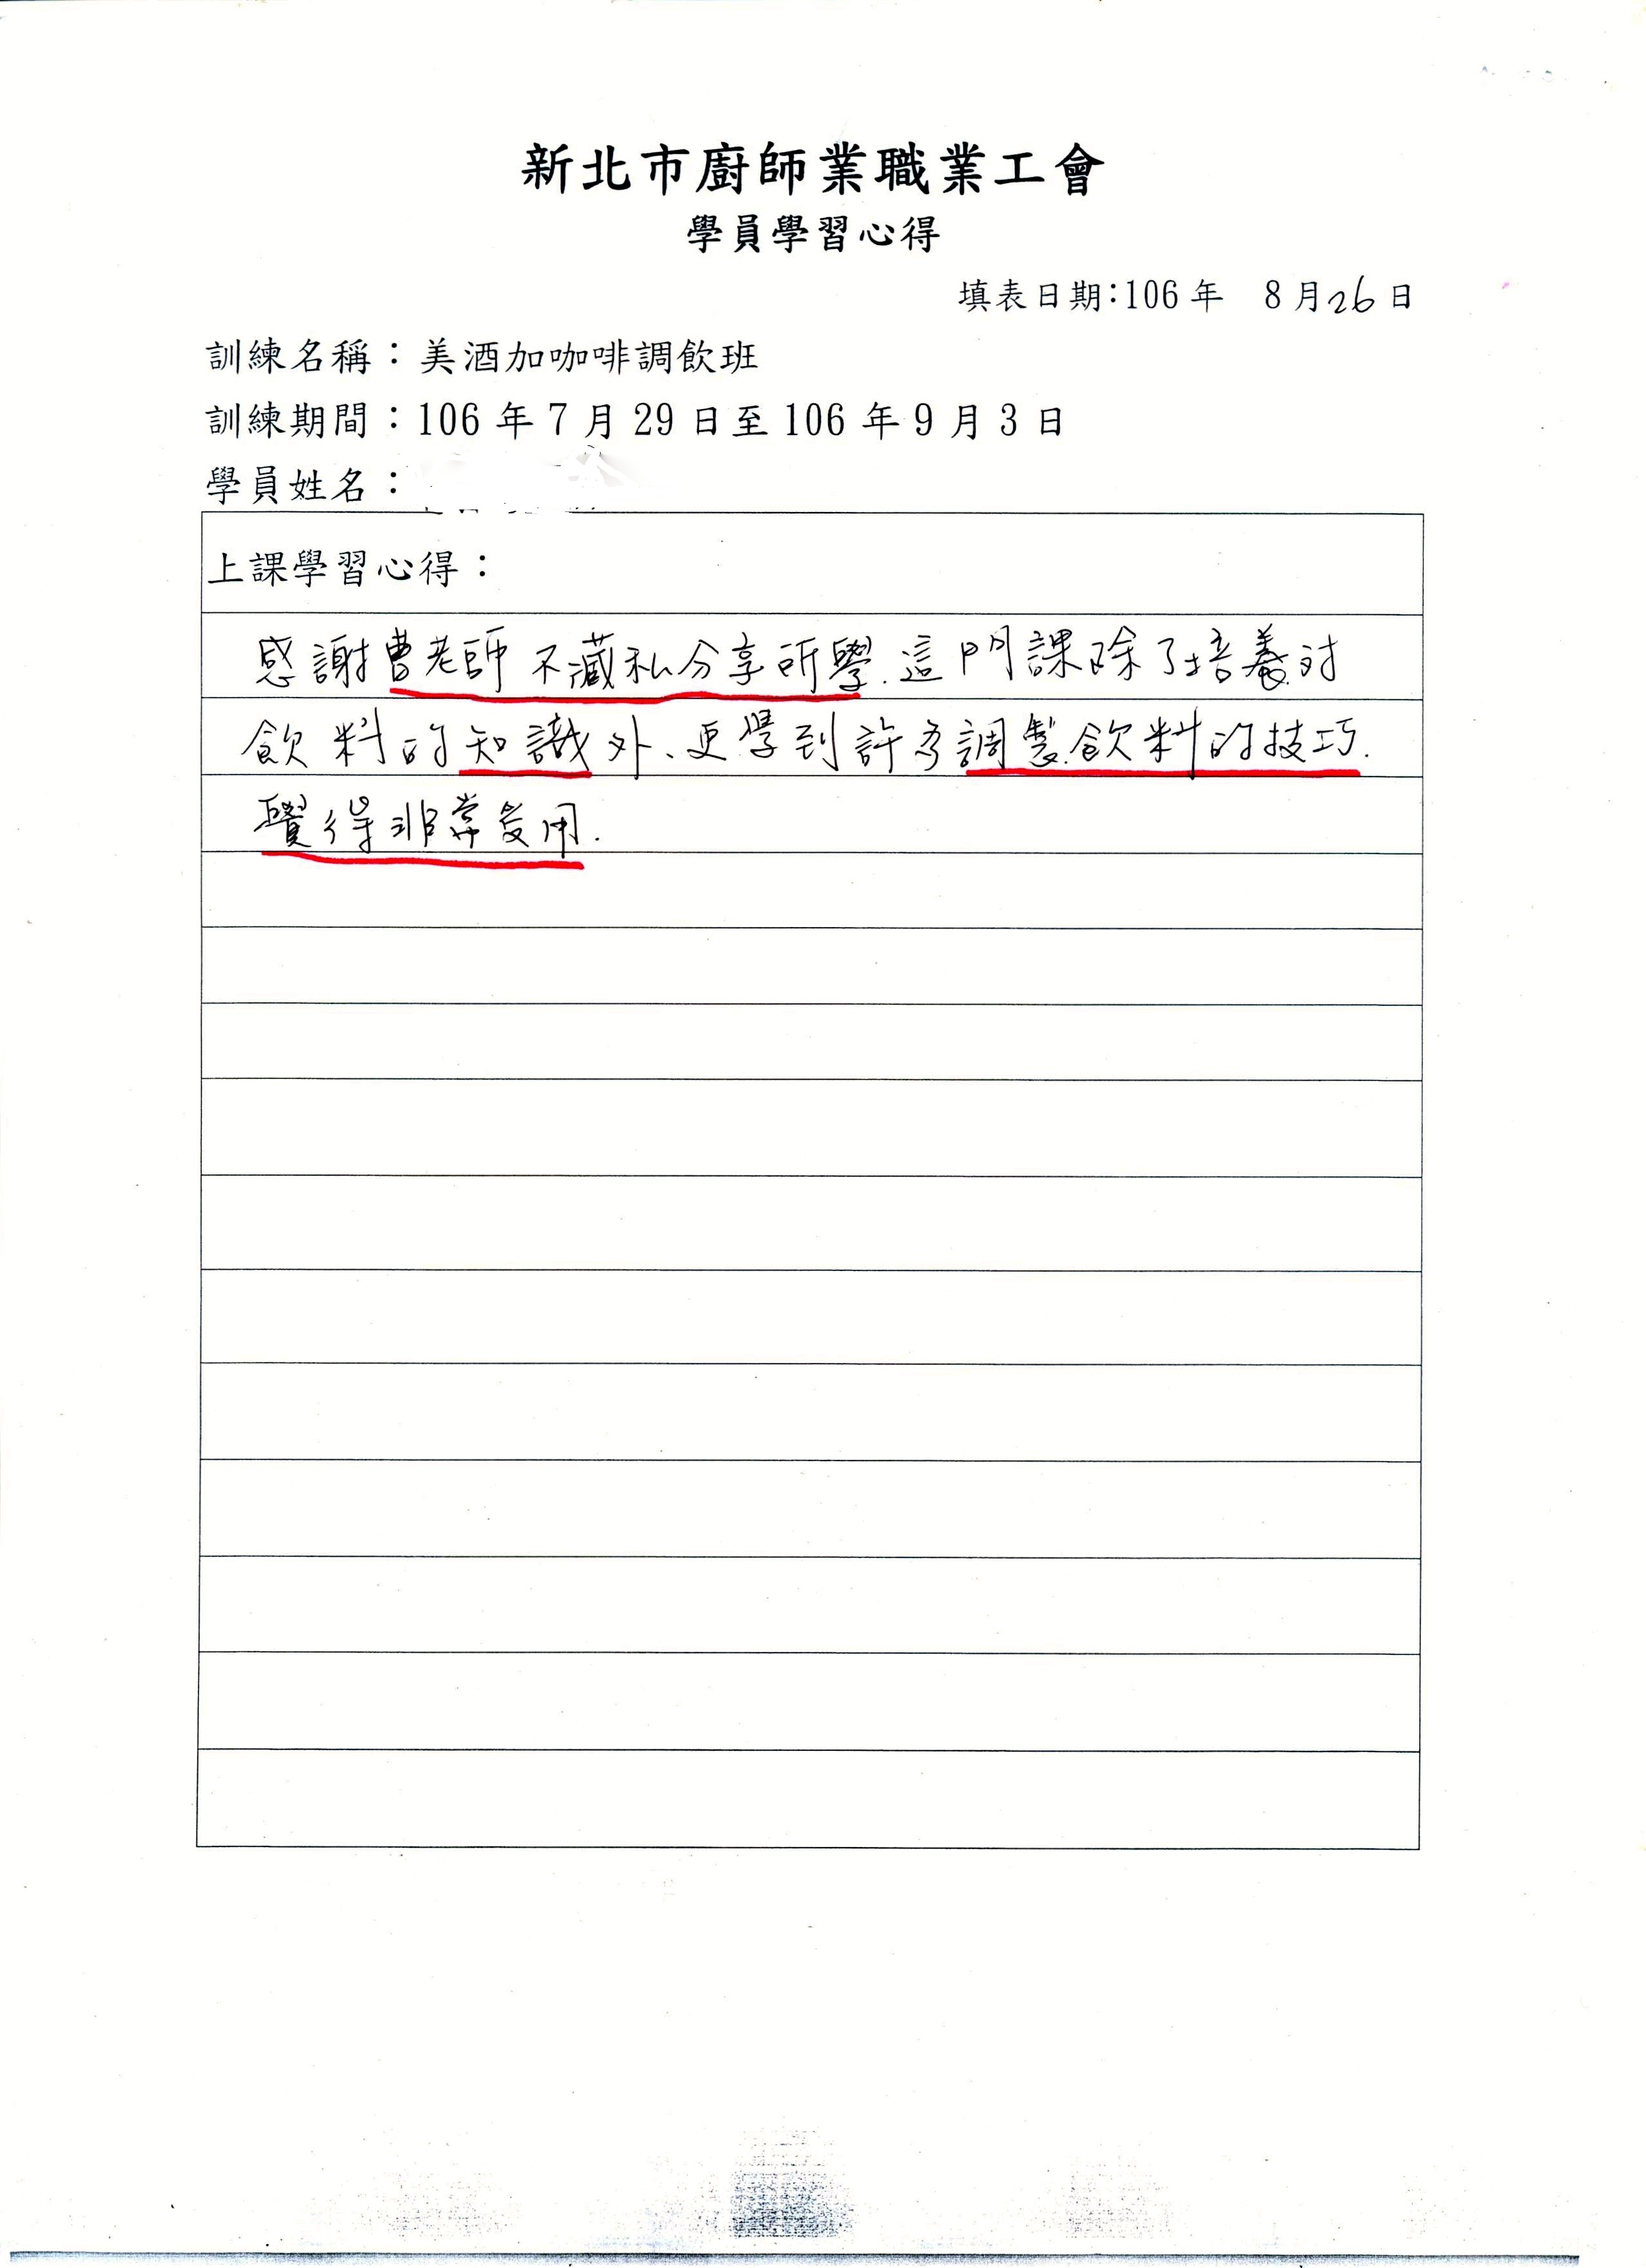 新北市廚師業職業工會
學員學習心得
填表日期:106年 8月26日
訓練名稱：美酒加咖啡調飲班
訓練期間：106年7月29日至106年9月3日
學員姓名：
上課學習心得：
感謝曹老師不藏私分享所學.這門課除了培養對
飲料的知識外、更學到許多調製飲料的技巧.
覺得非常受用.